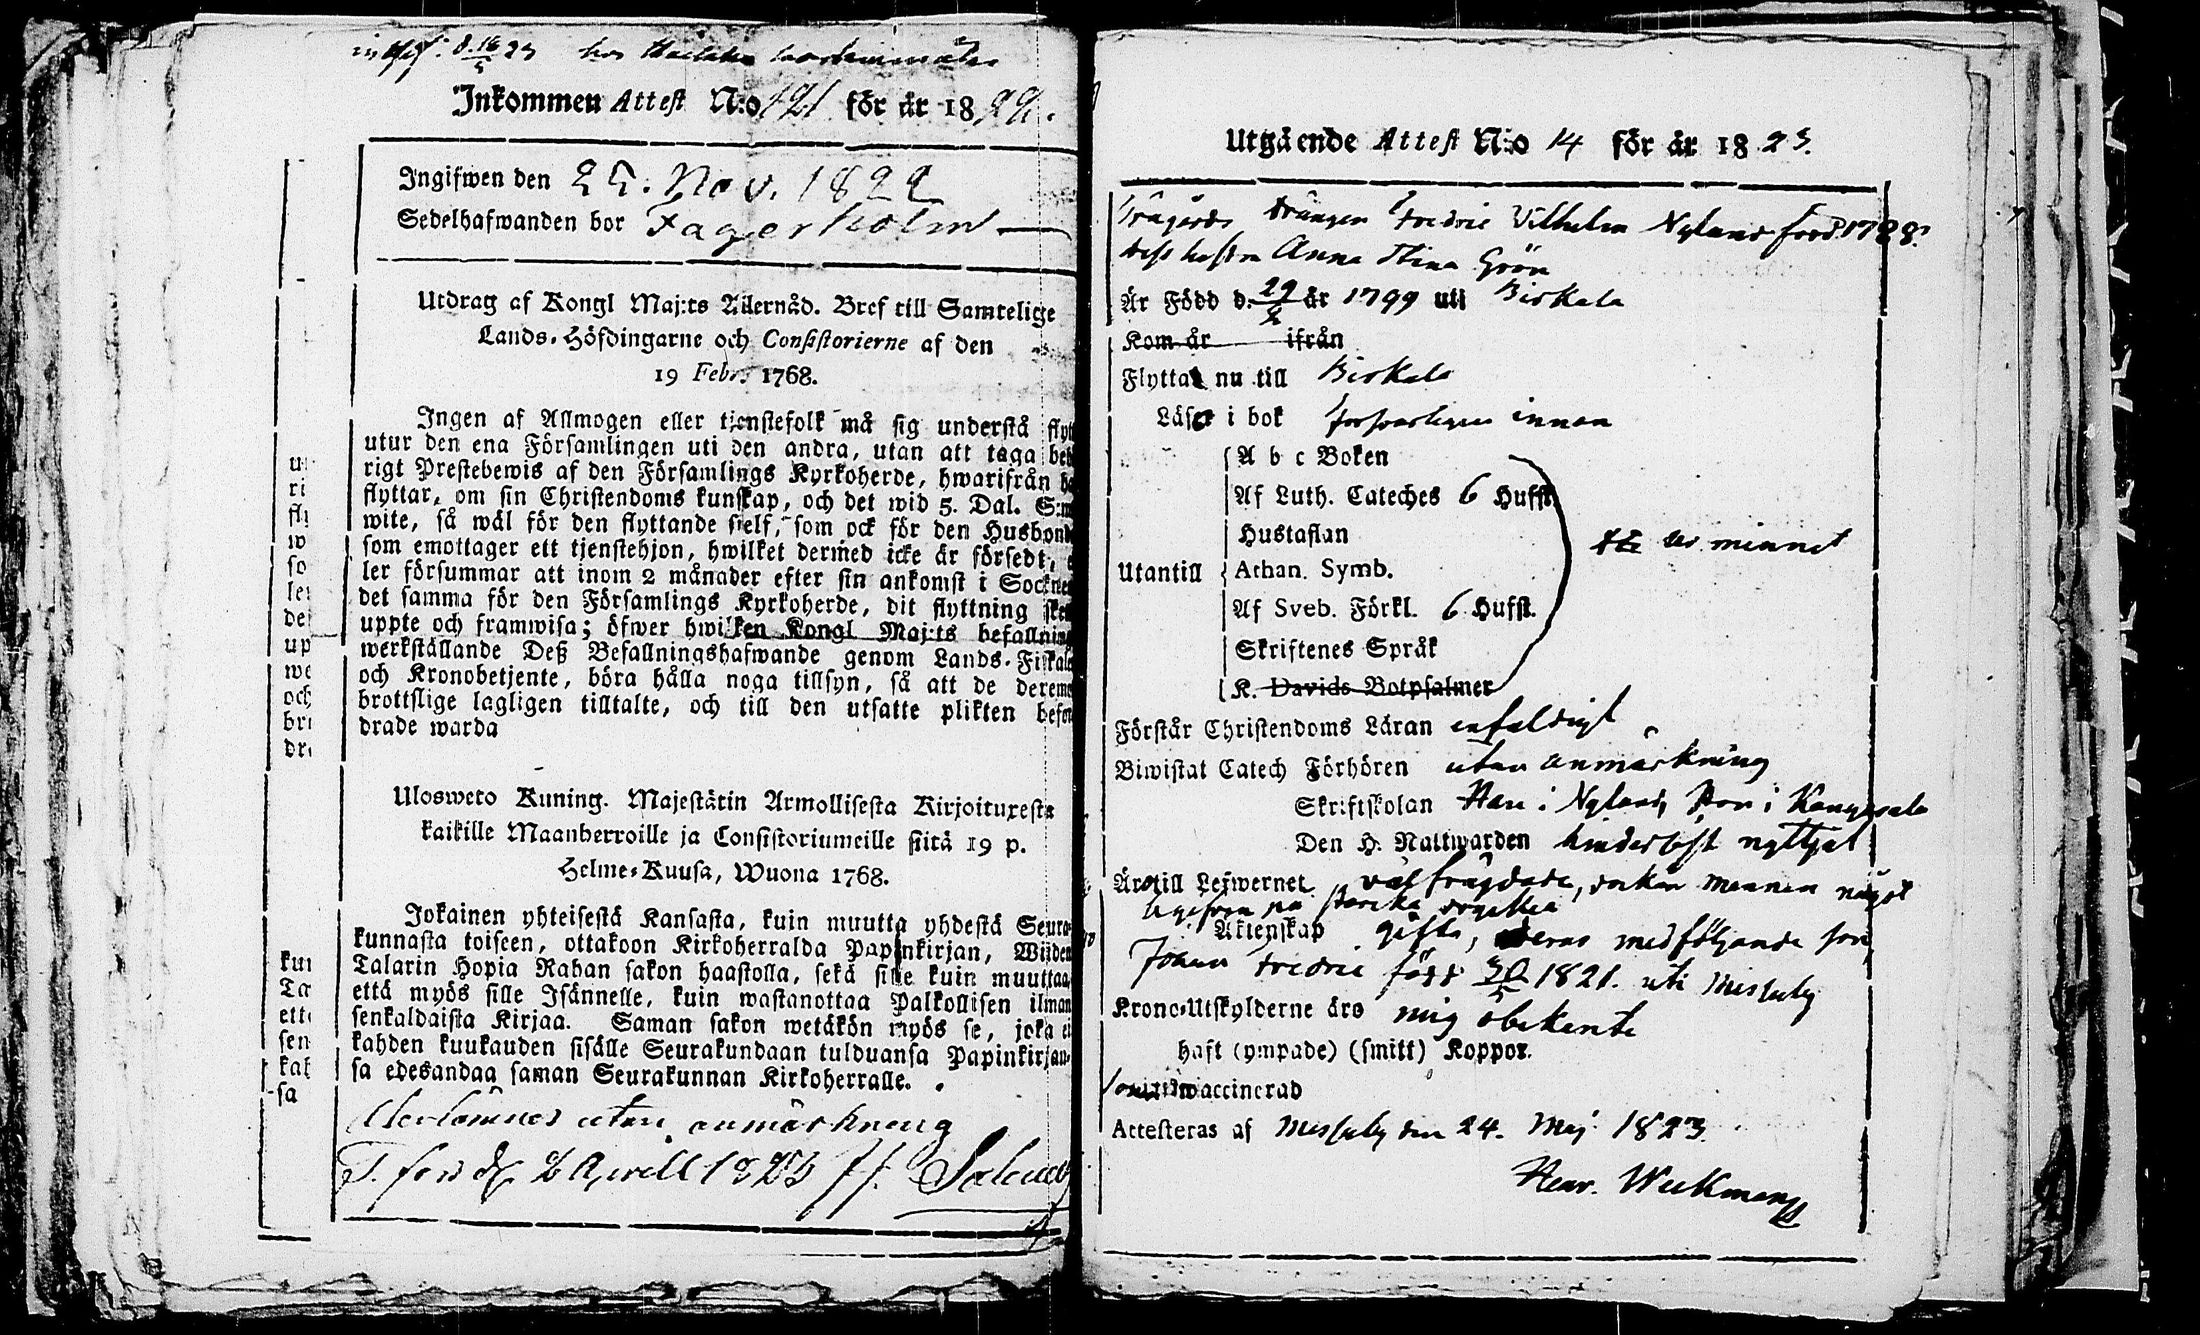 Inkommen Attest N:o 121 för år 1822.
Ingifwen den 25. Nov. 1822
Sedelhafwanden bor Fagerholm
Utdrag af Kongl Maj:ts Allernåd. Bref till Samtelige
Lands-Höfdingarne och Consistorierne af den
19 Febr. 1768.
Ingen af Allmogen eller tjenstefolk må sig understå flytt
utur den ena Församlingen uti den andra, utan att taga beh
rigt Prestebewis af den Församlings Kyrkoherde, hwarifrån ha
flyttar, om sin Christendoms kunskap, och det wid 5. Dal. S:m
wite, så wäl för den flyttande sielf, som ock för den Husbond
som emottager ett tjenstehjon, hwilket dermed icke är försedt, e
ler försummar att inom 2 månader efter sin ankomst i Socknen
det samma för den Församlings Kyrkoherde, dit flyttning sked
uppte och framwisa; öfwer hwilken Kongl Maj:ts befallning
werkställande Deß Befallningshafwande genom Lands-Fiskale
och Kronobetjente, böra hålla noga tillsyn, så att de deremo
brottslige lagligen tilltalte, och till den utsatte plikten befor
drade warda
Ulosweto Kuning. Majestätin Armollisesta Kirjoituxesta
kaikille Maanherroille ja Consistoriumeille siitä 19 p.
Helme-Kuusa, Wuona 1768.
Jokainen yhteisestä Kansasta, kuin muutta yhdestä Seura-
kunnasta toiseen, ottakoon Kirkoherralda Papinkirjan, Wijden
Talarin Hopia Rahan sakon haastolla, sekä sille kuin muuttaa,
että myös sille Isännelle, kuin wastanottaa Palkollisen ilman
senkaldaista Kirjaa. Saman sakon wetäkön myös se, joka ei
kahden kuukauden sisälle Seurakundaan tulduansa Papinkirjan-
sa edesandaa saman Seurakunnan Kirkoherralle.
utan anmärkning
Aprill 1823
Utgående Attest N:o 14 för år 1823.
Drängen Fredric Vilhelm Nyland född 1788.
dess hustru Anna Stina Grön
Är Född d. 29/2 år 1799 uti Birkala
Kom år ifrån
Flyttar nu till Birkala
Läser i bok försvarligen innan
A b c Boken
Af Luth. Cateches 6 Hufst.
Hustaflan
ur minnet
Utantill Athan. Symb.
Af Sveb. Förkl. 6 Hufst.
Skriftenes Språk
K. Davids Botpsalmer
Förstår Christendoms Läran enfaldigt
Biwistat Catech Förhören utan anmärkning
Skriftskolan Han i Nyland, hon i Kangasala
Den H. Nattwarden hinderlöst nyttjat
Äro till Lefwernet välfrägdade, mannen något
Äktenskap gifta, deras medföljande son,
Johan Fredric född 30/5 1821. uti Messuby
Krono-Utskylderne äro mig obekante
haft (ympade) (smitt) Koppor.
waccinerad
Attesteras af Messuby den 24. Maj 1823.
Henr. Weckman